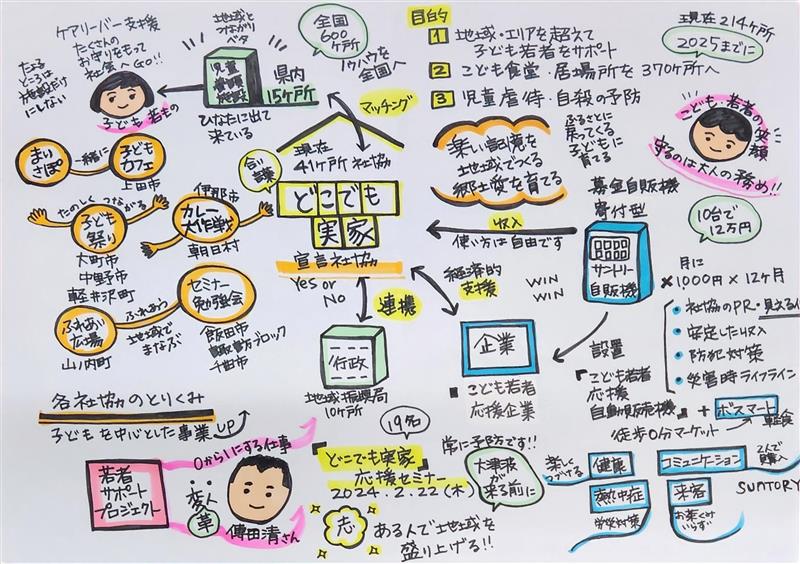 ケアリーバー支援
たくさんの
お守りをもって
社会へGO!!
たよる
ところは
施設だけ
にしない
子ども若もの
地域と
つながり
ベタ
児童
養護
施設
県内
15ヶ所
ひなたに出て
来ている
全国
600
ヶ所
ノウハウを
全国へ
マッチング
目的
1 地域・エリアを超えて
子ども若者をサポート
2 こども食堂・居場所を370ヶ所へ
3 児童虐待・自殺の予防
現在214ヶ所
2025までに
こども・若者の笑顔
守るのは大人の務め!!
まい
さぽ
一緒に
子ども
カフェ
上田市
たのしくつながる
子ども
祭り
大町市
中野市
軽井沢町
伊那市
カレー
大作戦
朝日村
ふれあい
広場
山ノ内町
ふれあう
地域で
まなぶ
セミナー
勉強会
飯田市
諏訪ブロック
千曲市
合い
言葉
現在
41ヶ所社協
どこでも
実家
宣言社協
Yes or
No
連携
行政
地域振興局
10ヶ所
楽しい記憶を
地域でつくる
郷土愛を育てる
ふるさとに
戻ってくる
子どもに
育てる
収入
使い方は自由です
募金自販機
寄付型
サントリー
自販機
10台で
12万円
月に
×1000円×12ヶ月
社協のPR・見える化
安定した収入
防犯対策
災害時ライフライン
経済的
支援
WIN
WIN
企業
「こども若者
応援企業
設置
「こども若者
応援
自動販売機」
+ ボスマート
軽食
徒歩0分マーケット
各社協のとりくみ
子どもを中心とした事業 UP
若者
サポート
プロジェクト
0から1にする仕事
変人
革
傳田清さん
19名
「どこでも実家」
応援セミナー
2024.2.22(木)
志
ある人で地域を
盛り上げる!!
常に予防です!!
大津波が
来る前に
楽しく
つづける
健康
熱中症
労災対策
コミュニケーション
2人で
購入
来客
お茶くみ
いらず
SUNTORY